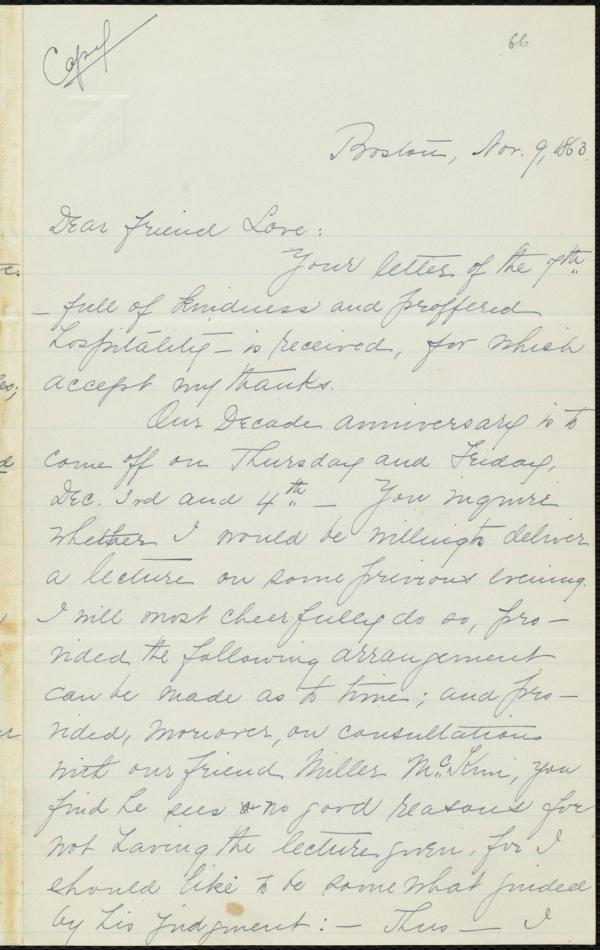 Copy
66
Boston, Nov. 9, 1863.
Dear friend Love:
Your letter of the 7th
– full of kindness and proffered
hospitality – is received, for which
accept my thanks.
Our Decade anniversary is to
come off on Thursday and Friday,
Dec. 3rd and 4th – You inquire
whether I would be willing to deliver
a lecture on some privious evening.
I will most cheerfully do so, pro-
vided the following arrangement
can be made as to time; and pro-
vided, moreover, on consultation
with our friend Miller McKim, you
find he sees no good reasons for
not having the lecture given, for I
should like to be somewhat guided
by his judgment: – Thus – I